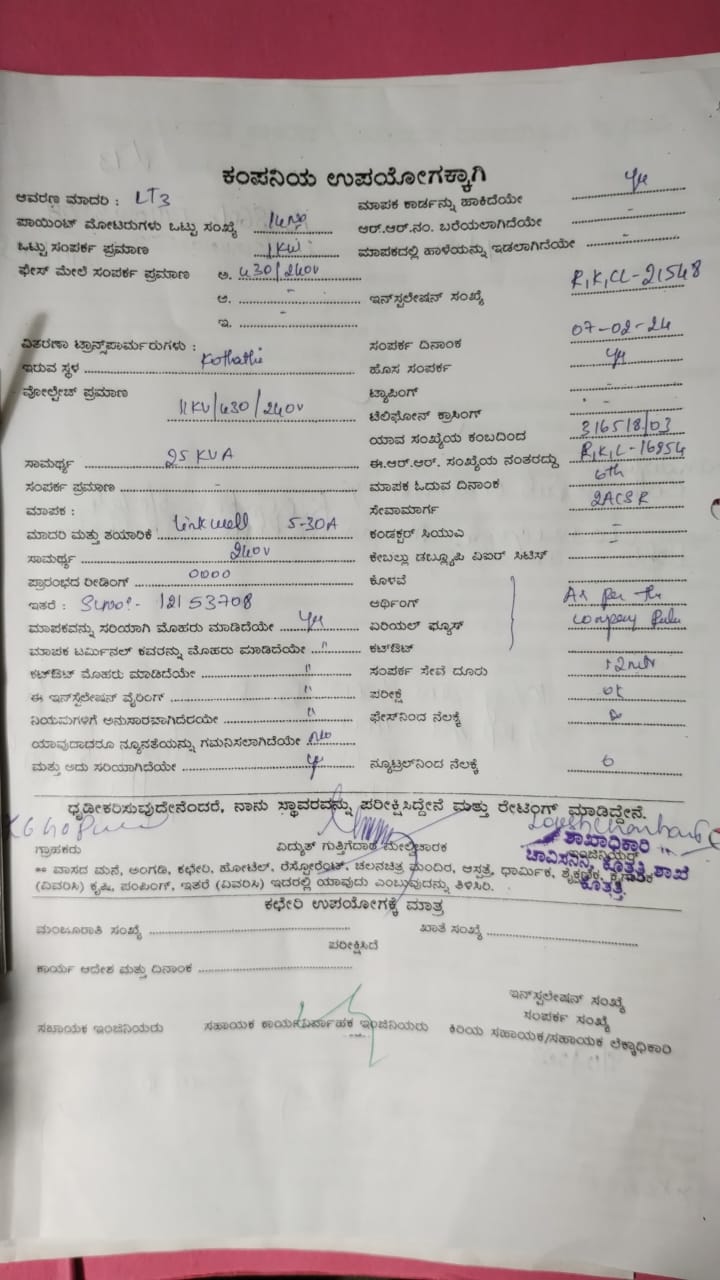 ಕಂಪನಿಯ ಉಪಯೋಗಕ್ಕಾಗಿ
ಆವರಣ ಮಾದರಿ : LT3
ಮಾಪಕ ಕಾರ್ಡನ್ನು ಹಾಕಿದೆಯೇ
ಪಾಯಿಂಟ್ ಮೋಟರುಗಳು ಒಟ್ಟು ಸಂಖ್ಯೆ
ಆರ್.ಆರ್.ನಂ. ಬರೆಯಲಾಗಿದೆಯೇ -
ಒಟ್ಟು ಸಂಪರ್ಕ ಪ್ರಮಾಣ 1KW
ಮಾಪಕದಲ್ಲಿ ಹಾಳೆಯನ್ನು ಇಡಲಾಗಿದೆಯೇ -
ಫೇಸ್ ಮೇಲೆ ಸಂಪರ್ಕ ಪ್ರಮಾಣ ಅ. 430/240V
ಆ. -
ಇನ್‌ಸ್ಟಲೇಷನ್ ಸಂಖ್ಯೆ R,K,CL-21548
ಇ. -
ವಿತರಣಾ ಟ್ರಾನ್ಸ್‌ಫಾರ್ಮರುಗಳು :
ಸಂಪರ್ಕ ದಿನಾಂಕ 07-02-24
ಇರುವ ಸ್ಥಳ Kothathi
ಹೊಸ ಸಂಪರ್ಕ
ವೋಲ್ಟೇಜ್ ಪ್ರಮಾಣ 11KV/430/240V
ಟ್ಯಾಪಿಂಗ್ -
ಟೆಲಿಫೋನ್ ಕ್ರಾಸಿಂಗ್ -
ಯಾವ ಸಂಖ್ಯೆಯ ಕಂಬದಿಂದ 316518/03
ಸಾಮರ್ಥ್ಯ 25 KVA
ಈ.ಆರ್.ಆರ್. ಸಂಖ್ಯೆಯ ನಂತರದ್ದು R,K,L-16954
ಸಂಪರ್ಕ ಪ್ರಮಾಣ -
ಮಾಪಕ ಓದುವ ದಿನಾಂಕ 6th
ಮಾಪಕ :
ಸೇವಾಮಾರ್ಗ 2ACSR
ಮಾದರಿ ಮತ್ತು ತಯಾರಿಕೆ Linkwell 5-30A
ಕಂಡಕ್ಟರ್ ಸಿಯುಎ -
ಸಾಮರ್ಥ್ಯ 240V
ಕೇಬಲ್ಲು ಡಬ್ಲ್ಯೂಪಿ ವಿಐರ್ ಸಿಟಿಸ್ -
ಪ್ರಾರಂಭದ ರೀಡಿಂಗ್ 0000
ಕೊಳವೆ
ಇತರೆ : 12153708
ಅರ್ಥಿಂಗ್ As per the
ಮಾಪಕವನ್ನು ಸರಿಯಾಗಿ ಮೊಹರು ಮಾಡಿದೆಯೇ
ಏರಿಯಲ್ ಫ್ಯೂಸ್ company
ಮಾಪಕ ಟರ್ಮಿನಲ್ ಕವರನ್ನು ಮೊಹರು ಮಾಡಿದೆಯೇ "
ಕಟ್‌ಔಟ್
ಕಟ್‌ಔಟ್ ಮೊಹರು ಮಾಡಿದೆಯೇ "
ಸಂಪರ್ಕ ಸೇವೆ ದೂರು
ಈ ಇನ್‌ಸ್ಟಲೇಷನ್ ವೈರಿಂಗ್ "
ಪರೀಕ್ಷೆ ok
ನಿಯಮಗಳಿಗೆ ಅನುಸಾರವಾಗಿದೆರಯೇ "
ಫೇಸ್‌ನಿಂದ ನೆಲಕ್ಕೆ
ಯಾವುದಾದರೂ ನ್ಯೂನತೆಯನ್ನು ಗಮನಿಸಲಾಗಿದೆಯೇ No
ಮತ್ತು ಅದು ಸರಿಯಾಗಿದೆಯೇ
ನ್ಯೂಟ್ರಲ್‌ನಿಂದ ನೆಲಕ್ಕೆ
ಧೃಡೀಕರಿಸುವುದೇನೆಂದರೆ, ನಾನು ಸ್ಥಾವರವನ್ನು ಪರೀಕ್ಷಿಸಿದ್ದೇನೆ ಮತ್ತು ರೇಟಿಂಗ್ ಮಾಡಿದ್ದೇನೆ.
ಗ್ರಾಹಕರು
ವಿದ್ಯುತ್ ಗುತ್ತಿಗೆದಾರ ಮೇಲ್ವಿಚಾರಕ
ಶಾಖಾಧಿಕಾರಿ
ಚಾವಿಸನಿನಿ ಕೊತ್ತತ್ತಿ ಶಾಖೆ
ಕೊತ್ತತ್ತಿ
** ವಾಸದ ಮನೆ, ಅಂಗಡಿ, ಕಛೇರಿ, ಹೋಟೆಲ್, ರೆಸ್ಟೋರೆಂಟ್, ಚಲನಚಿತ್ರ ಮಂದಿರ, ಆಸ್ಪತ್ರೆ, ಧಾರ್ಮಿಕ, ಶೈಕ್ಷಣಿಕ, ಕೈಗಾರಿಕೆ
(ವಿವರಿಸಿ) ಕೃಷಿ, ಪಂಪಿಂಗ್, ಇತರೆ (ವಿವರಿಸಿ) ಇದರಲ್ಲಿ ಯಾವುದು ಎಂಬುವುದನ್ನು ತಿಳಿಸಿರಿ.
ಕಛೇರಿ ಉಪಯೋಗಕ್ಕೆ ಮಾತ್ರ
ಮಂಜೂರಾತಿ ಸಂಖ್ಯೆ
ಖಾತೆ ಸಂಖ್ಯೆ
ಪರೀಕ್ಷಿಸಿದೆ
ಕಾರ್ಯ ಆದೇಶ ಮತ್ತು ದಿನಾಂಕ
ಇನ್‌ಸ್ಟಲೇಷನ್ ಸಂಖ್ಯೆ
ಸಂಪರ್ಕ ಸಂಖ್ಯೆ
ಸಹಾಯಕ ಇಂಜಿನಿಯರು
ಸಹಾಯಕ ಕಾರ್ಯನಿರ್ವಾಹಕ ಇಂಜಿನಿಯರು
ಕಿರಿಯ ಸಹಾಯಕ/ಸಹಾಯಕ ಲೆಕ್ಕಾಧಿಕಾರಿ